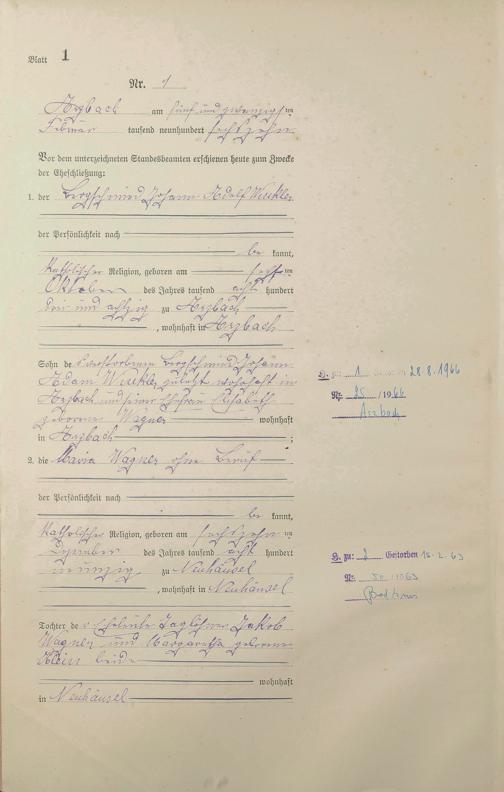 Blatt 1
Nr. 1
Arzbach am fünf und zwanzigsten
Februar tausend neunhundert sechszehn
Vor dem unterzeichneten Standesbeamten erschienen heute zum Zwecke
der Eheschließung:
1. der Bergschmied Johann Adolf Winkler
der Persönlichkeit nach
be kannt,
katholischer Religion, geboren am sechsten
Oktober des Jahres tausend acht hundert
drei und achtzig zu Arzbach
, wohnhaft in Arzbach
Sohn des verstorbenen Bergschmied Johann
Adam Winkler zuletzt wohnhaft in
Arzbach und seiner Ehefrau Elisabeth
geborenen Wagner wohnhaft
in Arzbach ;
2. die Maria Wagner ohne Beruf
der Persönlichkeit nach
be kannt,
katholischer Religion, geboren am sechszehnten
Dezember des Jahres tausend acht hundert
neunzig zu Neuhäusel
, wohnhaft in Neuhäusel
Tochter der Eheleute Taglöhner Jakob
Wagner und Margaretha geborene
Klein beide
wohnhaft
in Neuhäusel
1 28.8.1966
Nr. 25 /1966
Arzbach
zu: 2 Gestorben 18.2.63
Nr. 50 /1963